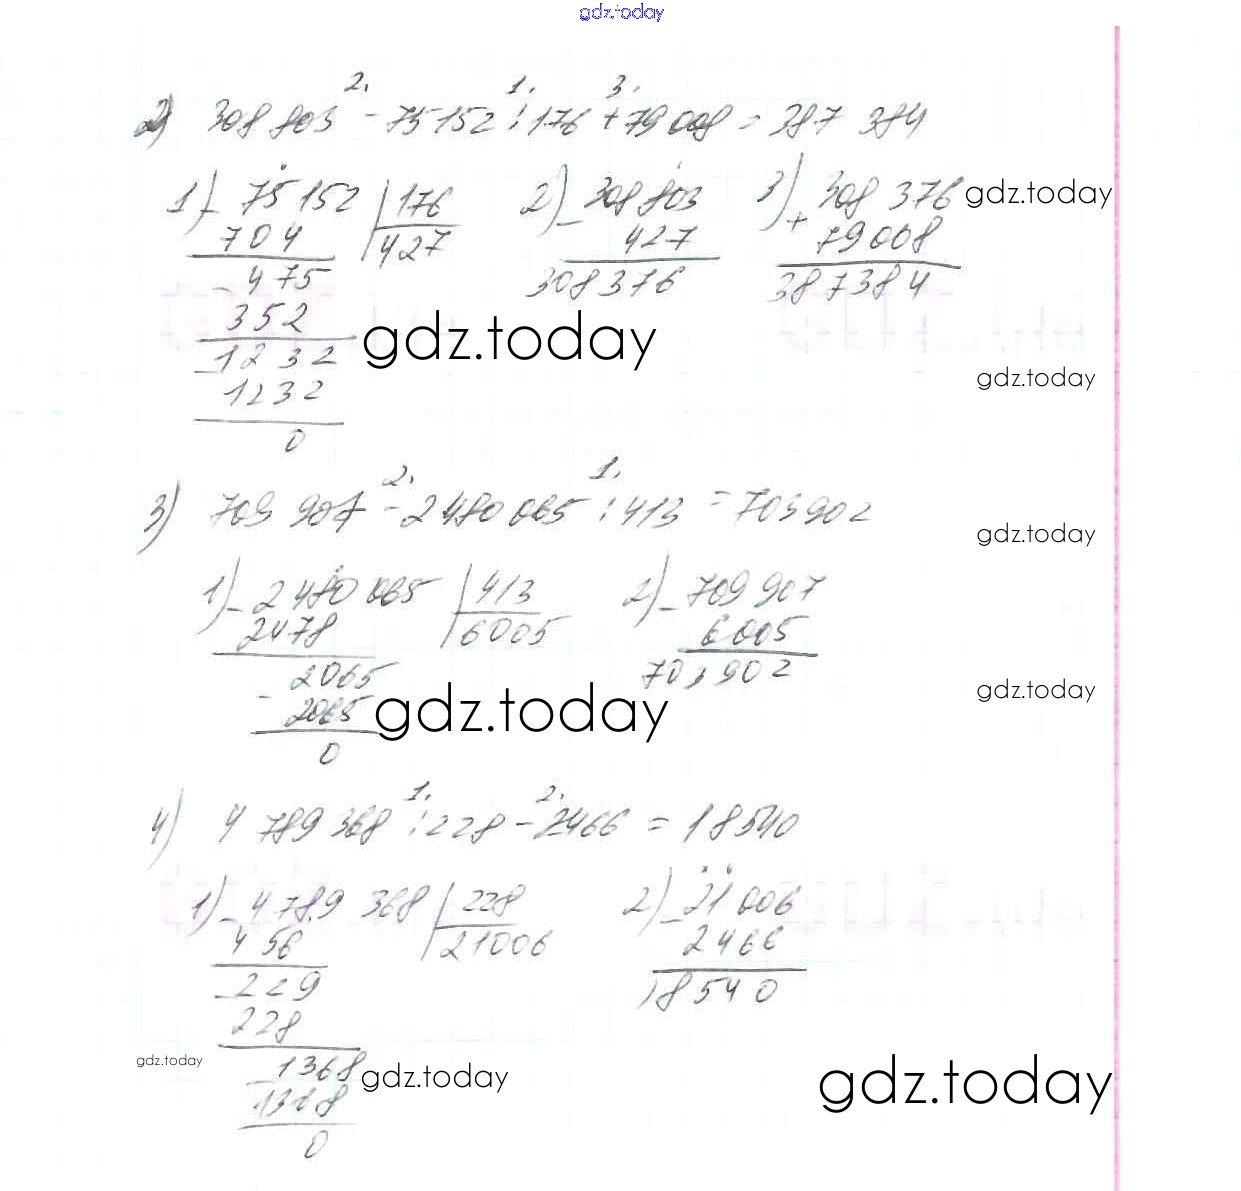 gdz.today
2. 1. 3.
2) 308 803 - 75152 : 176 + 79 008 = 387 384
1) - 75 152 | 176 2) - 308 803 3) 308 376 gdz.today
704 427 427 + 79008
- 475 308376 387384
352
gdz.today
- 1232
gdz.today
1232
0
2. 1.
3) 709 907 - 2 480 065 : 413 = 703902
gdz.today
1) - 2 480 065 | 413 2) - 709 907
2478 6005 6005
2065 703902
gdz.today
- 2065 gdz.today
0
1. 2.
4) 4 789 368 : 228 - 2466 = 18540
1) - 4 789 368 | 228 2) - 21 006
456 21006 2466
- 229 18540
228
gdz.today - 1368 gdz.today gdz.today
1368
0